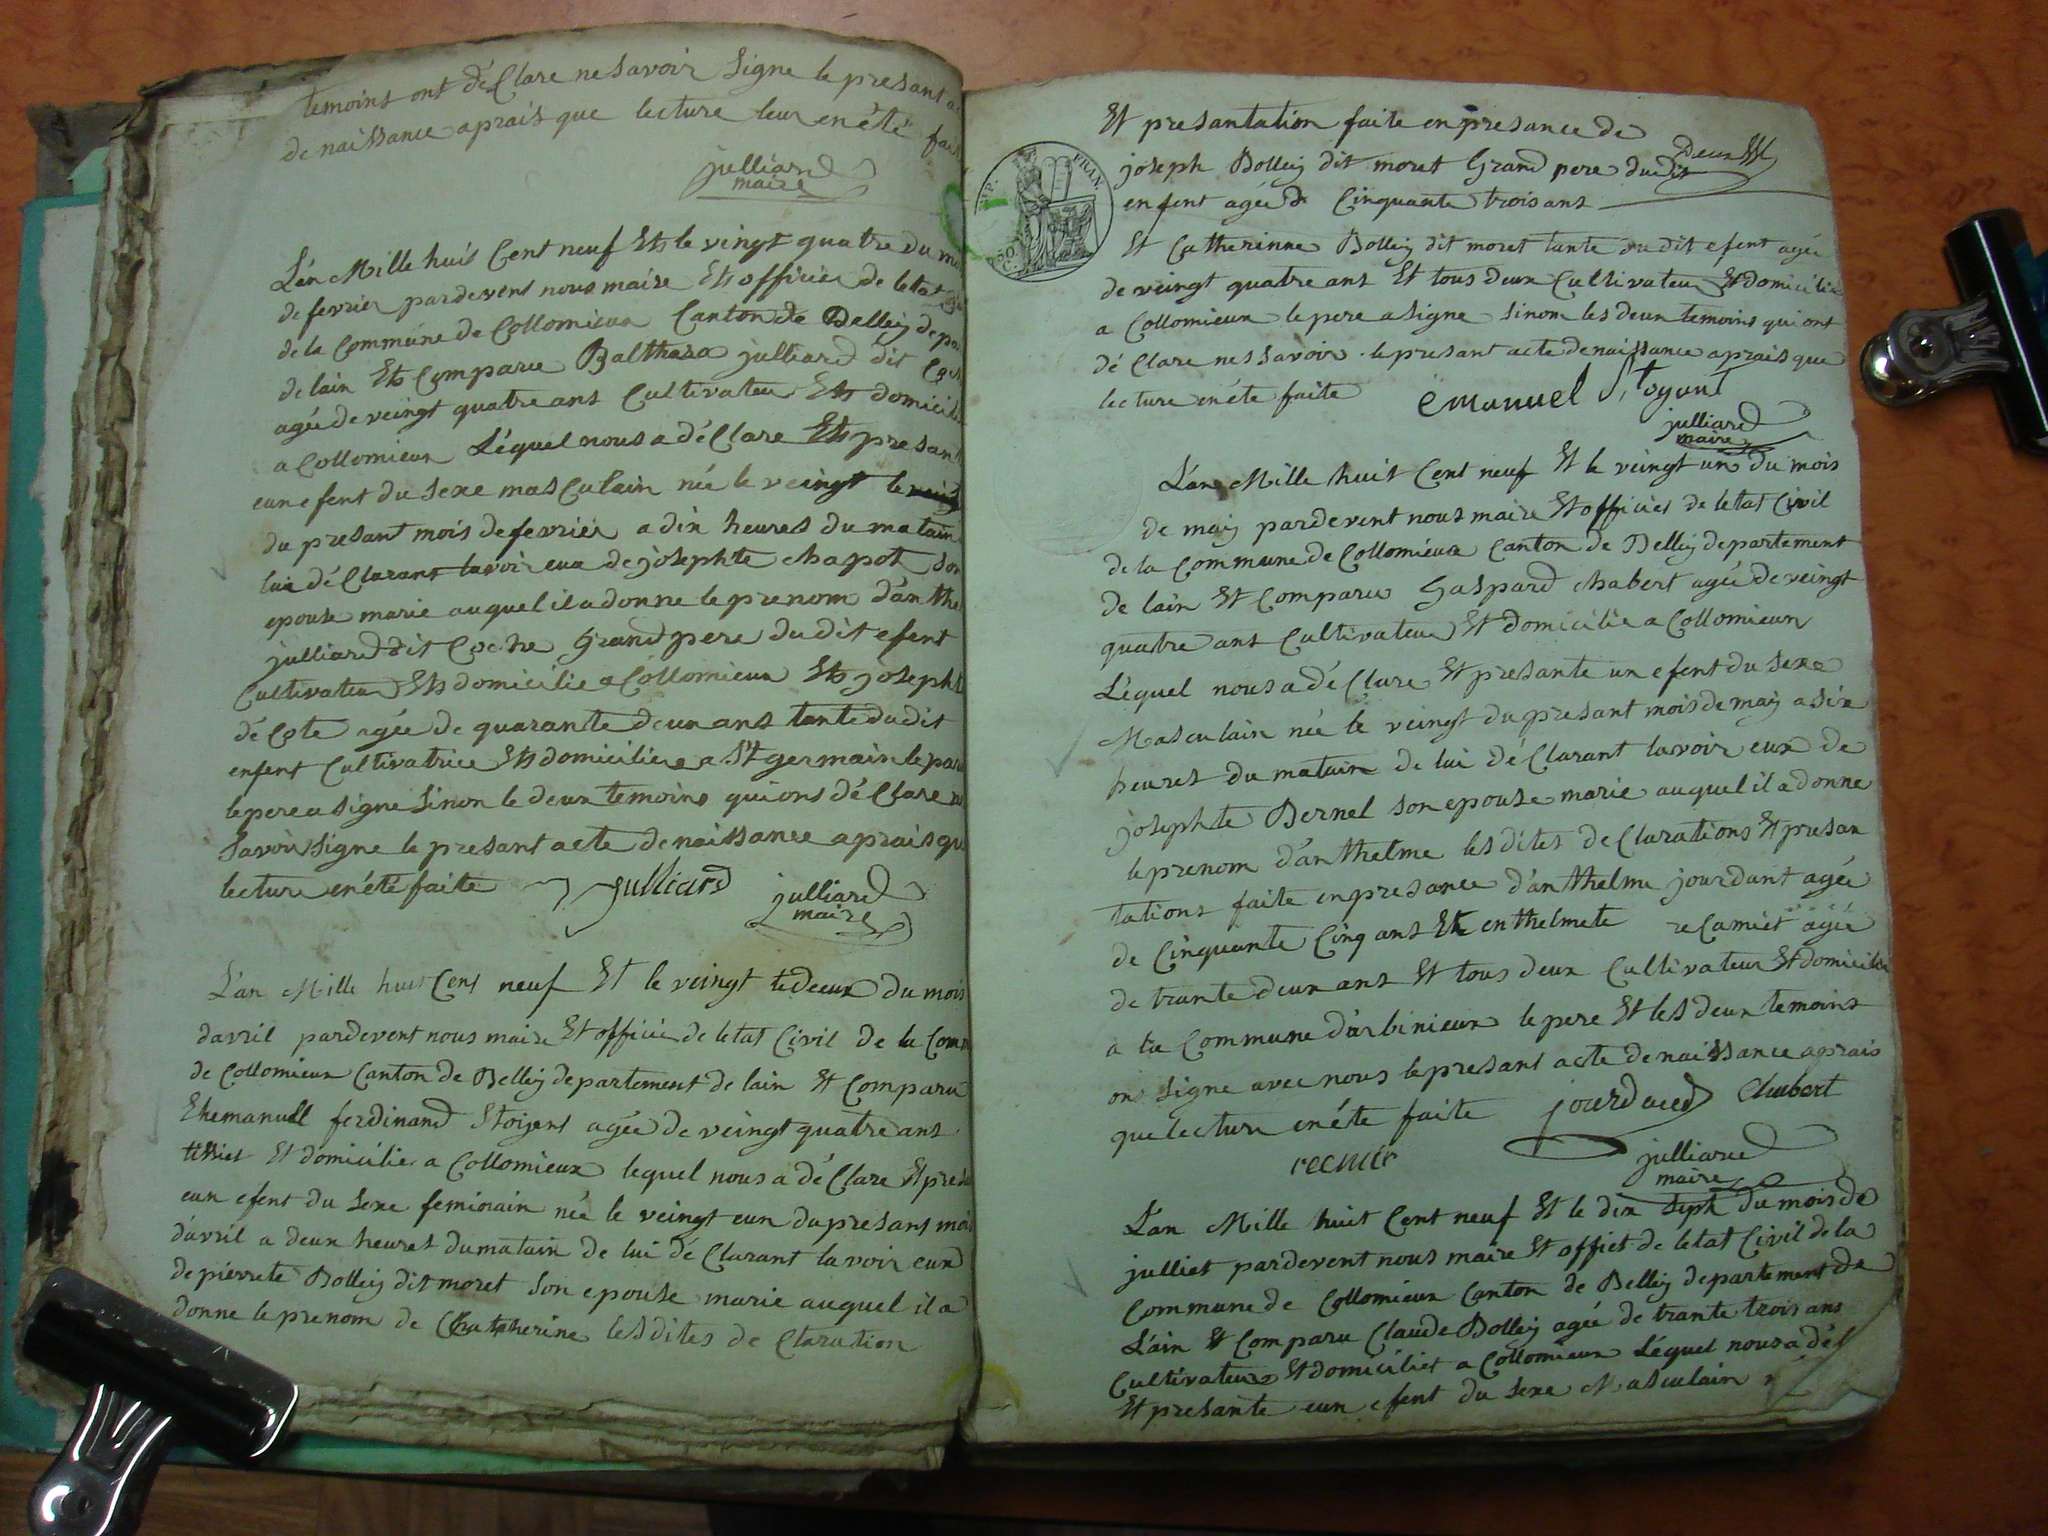 temoins ont déClare ne savoir signe le presant
de naissance aprais que lecture leur en été
julliard
maire
L'an Mille huis Cent neuf Et le vingt quatre du
de fevrier pardevent nous maire Et officier de letat
de la Commune de Collomieux Canton de Belley
de lain Et Comparu Balthasa julliard dit
agée de veingt quatre ans Cultivateur Et domicilie
a Collomieux Léquel nous a déClare Et presant
eun efent du sexe masCulain née le veingt le
du presant mois de fevrier a dix heures du matain
lui déClarant lavoir eux de josephte chapot son
epouse marie auquel il a donne le prenom d'anthe
julliard dit Coche Grand pere du dit efent
Cultivateur Et domicilie a Collomieux Et josepht
déCote agée de quarante deux ans tante du dit
enfent Cultivatrice Et domiciliee a St germain le
le pere a signe sinon le deux temoins qui ons déClare
savoir signe le presant acte de naissance aprais qu
lecture en été faite julliard
julliard
maire
L'an Mille huit Cent neuf Et le veingt te deux du mois
davril pardevent nous maire Et officier de letat Civil de la Com
de Collomieux Canton de Belley departement de lain Et Comparu
Ehemanuell ferdinand Stoijent agée de veingt quatre ans
Et domicilie a Collomieux lequel nous a déClare Et pres
eun efent du sexe feminain née le veingt eun du presant mois
d'avril a deux heures du matain de lui déClarant lavoir eux
de pierrete Bolley dit moret son epouse marie auquel il a
donne le prenom de Chatherine les dites de Claration
Et presantation faite en presance de
RÉP. FRAN.
50 C.
joseph Bolley dit moret Grand pere du dit
enfent agée de Cinquante trois ans
Et Catherinne Bolley dit moret tante du dit efent agée
de veingt quatre ans Et tous deux Cultivateur Et domicilie
a Collomieux le pere a signe sinon les deux temoins qui ont
déClare nes savoir le presant acte de naissance aprais que
lecture en éte faite emanuel Stoyant
julliard
maire
L'an Mille huit Cent neuf Et le veingt un du mois
de maij pardevent nous maire Et officier de letat Civil
de la Commune de Collomieux Canton de Belley departement
de lain Et Comparu Gaspard chabert agée de veingt
quatre ans Cultivateur Et domicilie a Collomieux
Léquel nous a déClare Et presante un efent du sexe
Masculain née le veingt du presant mois de maij a six
heures du matain de lui déClarant lavoir eux de
josephte Bernel son epouse marie auquel il a donne
le prenom d'anthelme les dites de Clarations Et presan
tations faite en presance d'anthelme jourdant agée
de Cinquante Cinq ans Et enthelmete reCamiet agée
de trante deux ans Et tous deux Cultivateur Et domicilie
a la Commune d'arbinieux le pere Et les deux temoins
ons signe avec nous le presant acte de naissance aprais
que lecture en éte faite Chabert
julliard
maire
L'an Mille huit Cent neuf Et le dix Sept du mois de
julliet pardevent nous maire Et offiet de letat Civil de la
Commune de Collomieux Canton de Belley departement de
L'ain Et Comparu Claude Bolley agée de trante trois ans
Cultivateur Et domiciliet a Collomieux Léquel nous a déC
Et presante eun efent du sexe Masculain